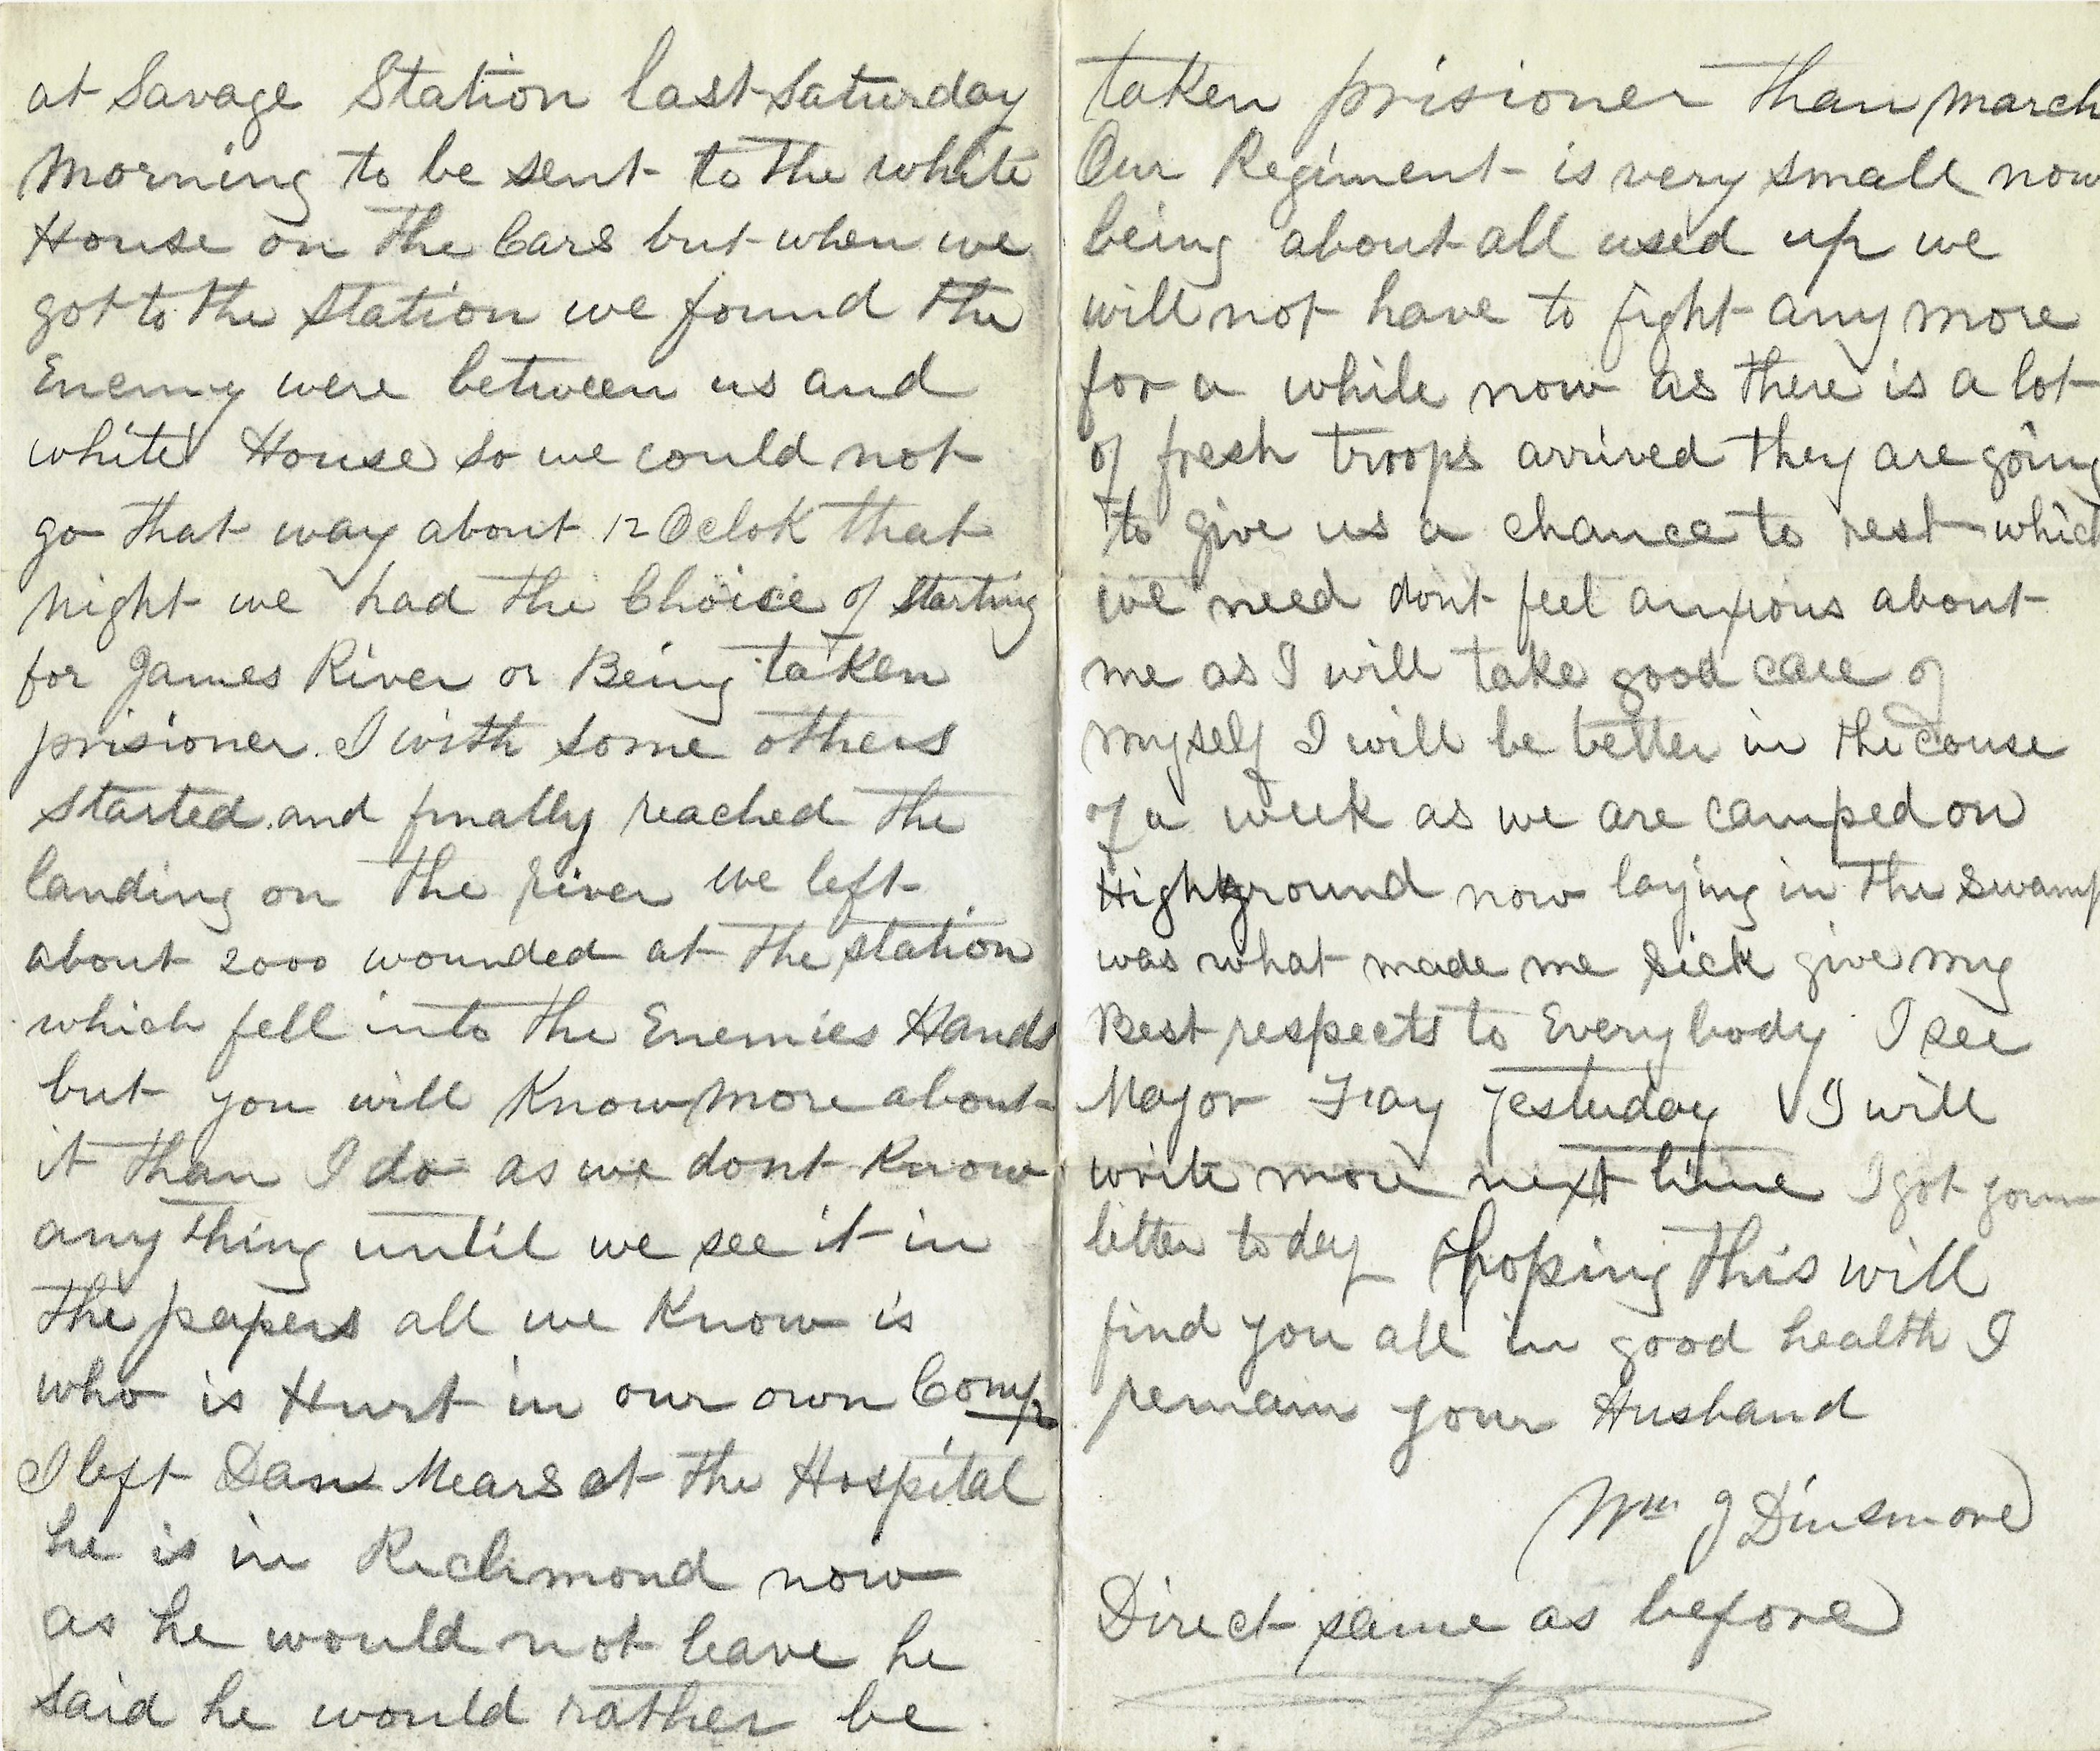 at Savage Station last Saturday
Morning to be sent to the white
House on the Cars but when we
got to the Station we found the
Enemy were between us and
white House so we could not
go that way about 12 Oclok that
night we had the Choice of starting
for James River or Being taken
prisioner. I with some others
started and finally reached the
landing on the river we left
about 2000 wounded at the station
which fell into the Enemies Hands
but you will Know more about
it than I do as we dont Know
any thing until we see it in
the papers all we Know is
who is Hurt in our own Comp
I left Dan Mears at the Hospital
he is in Richmond now
as he would not leave he
said he would rather be
taken prisioner than march
Our Regiment is very small now
being about all used up we
will not have to fight any more
for a while now as there is a lot
of fresh troops arrived they are going
to give us a chance to rest which
we need dont feel anxious about
me as I will take good care of
myself I will be better in the couse
of a week as we are camped on
High ground now laying in the swamp
was what made me sick give my
Best respects to Every body I see
Major Fay yesterday I will
write more next time I got your
letter to day hoping this will
find you all in good health I
remain your Husband
Wm J Dinsmore
Direct same as before